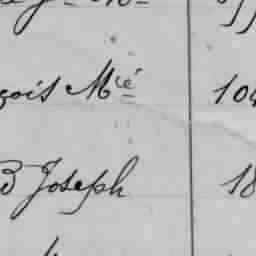 çois Mié 104
B Joseph 18